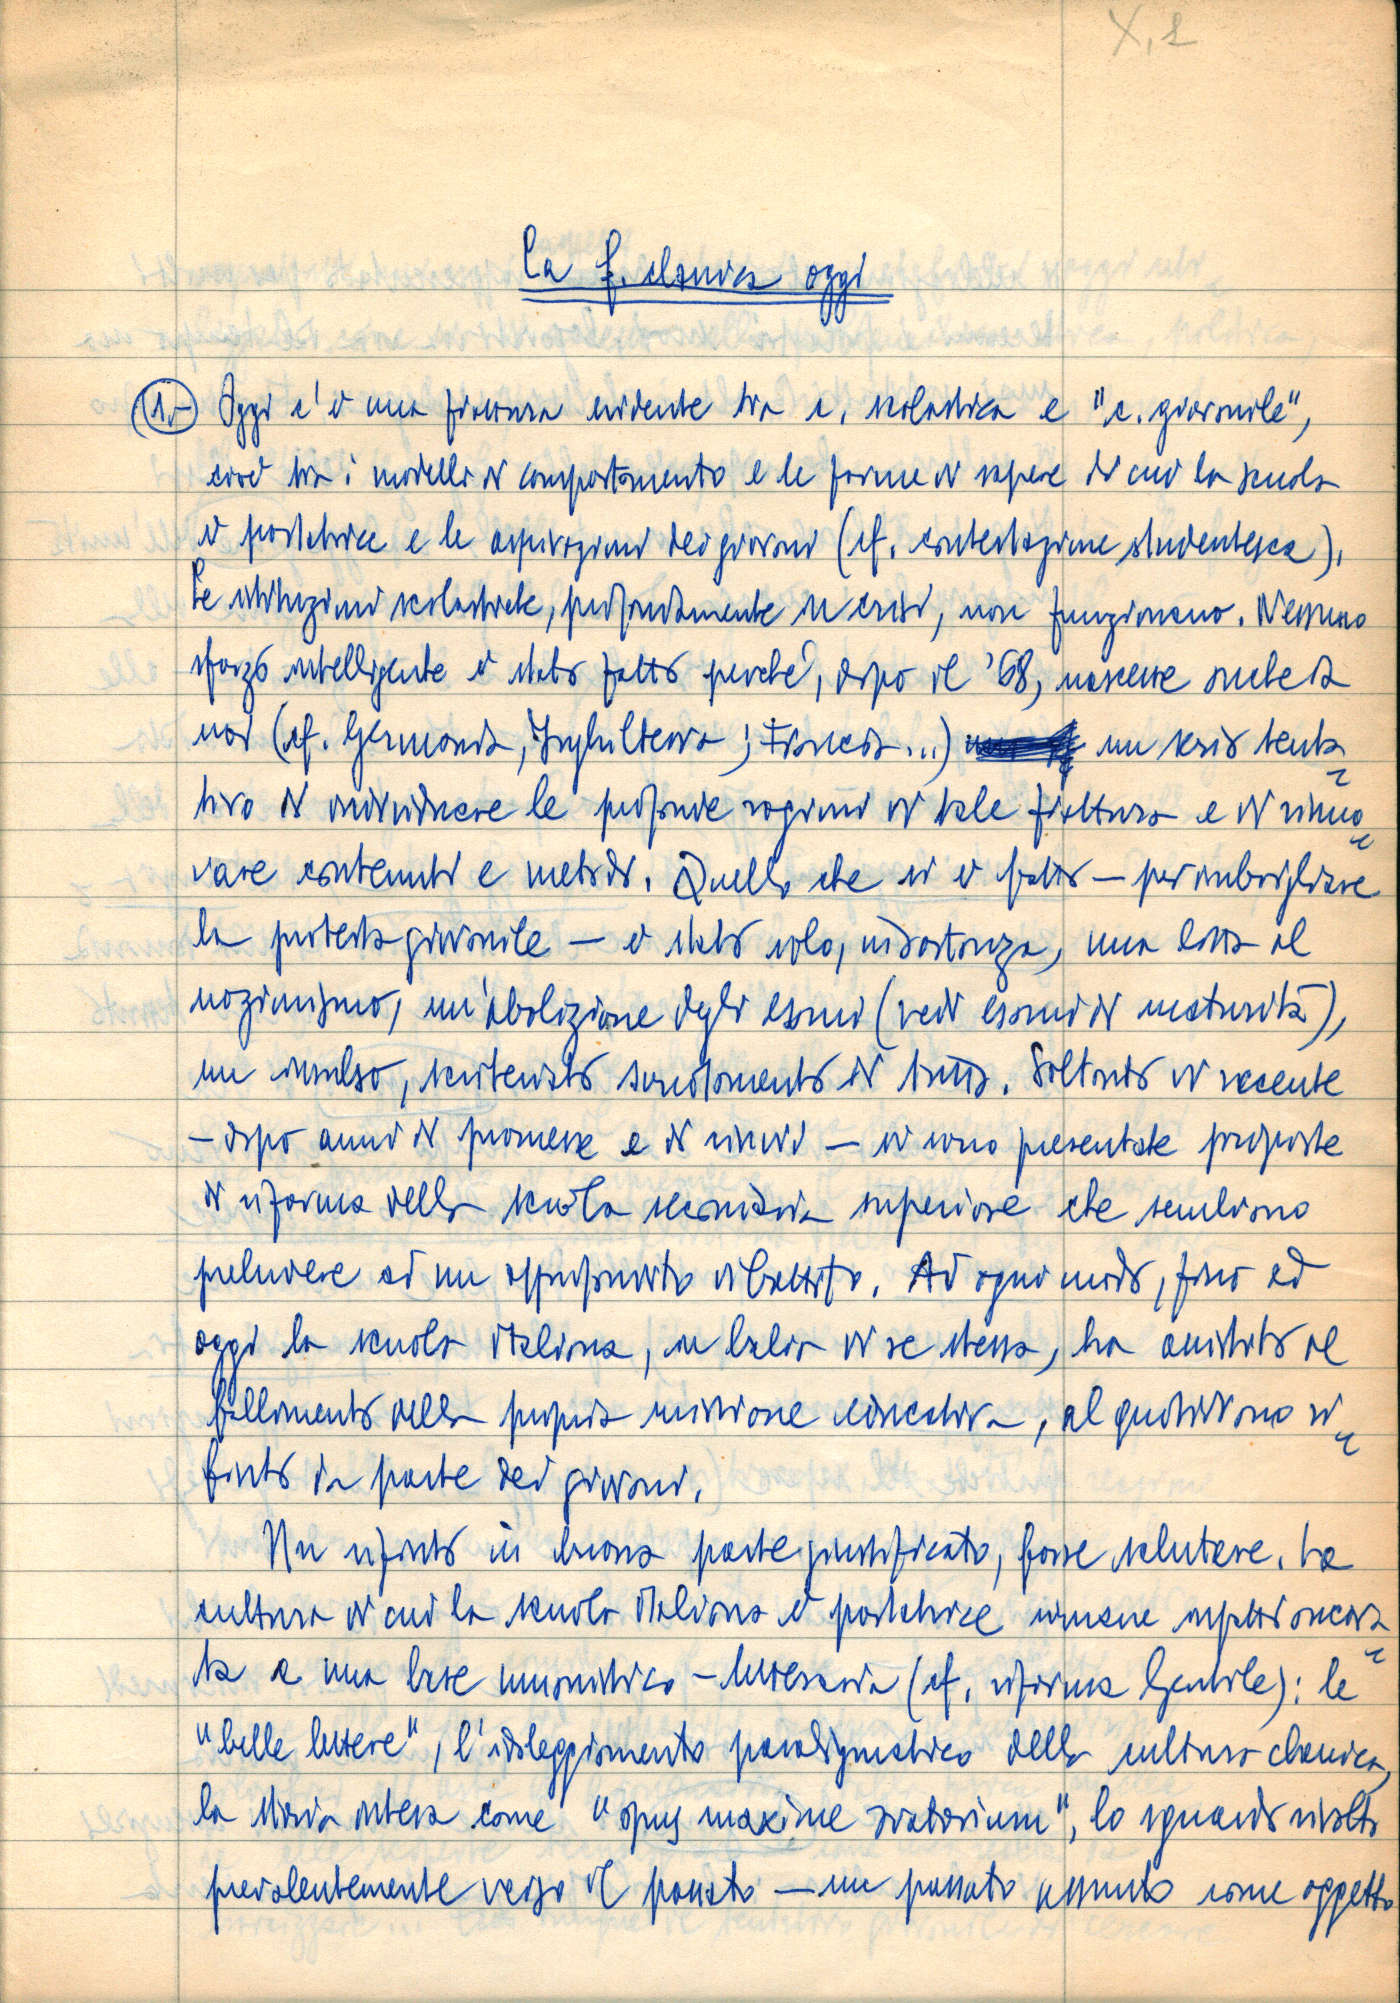 X, 2
La f. classica oggi
1.- Oggi c'è una frattura evidente tra c. scolastica e "c. giovanile",
cioè tra i modelli di comportamento e le forme di sapere di cui la scuola
è portatrice e le aspirazioni dei giovani (cf. contestazione studentesca).
Le istituzioni scolastiche, profondamente in crisi, non funzionano. Nessuno
sforzo intelligente è stato fatto perché, dopo il '68, nascesse anche da
noi (cf. Germania, Inghilterra, Francia...) un serio tenta
tivo di individuare le profonde ragioni di tale frattura e di rinno
vare contenuti e metodi. Quello che si è fatto – per imbrigliare
la protesta giovanile – è stato solo, in sostanza, una lotta al
nozionismo, un'abolizione degli esami (vedi esami di maturità),
un insulso, scriteriato svuotamento di tutto. Soltanto di recente
– dopo anni di promesse e di rinvii – si sono presentate proposte
di riforma della scuola secondaria superiore che sembrano
preludere ad un approfondito dibattito. Ad ogni modo, fino ad
oggi la scuola italiana, in balia di se stessa, ha assistito al
fallimento della propria missione educativa, al quotidiano ri
fiuto da parte dei giovani.
Un rifiuto in buona parte giustificato, forse salutare. La
cultura di cui la scuola italiana è portatrice rimane infatti ancora
ta a una base umanistico-letteraria (cf. riforma Gentile): le
"belle lettere", l'idoleggiamento paradigmatico della cultura classica,
la storia intesa come "opus maxime oratorium", lo sguardo rivolto
prevalentemente verso il passato – un passato assunto come oggetto